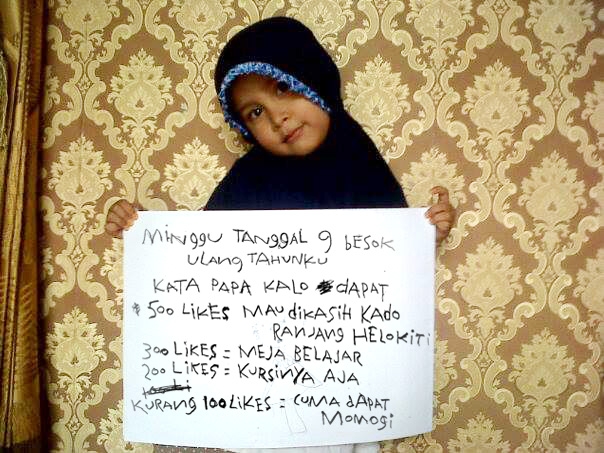 MINGGU TANGGAL 9 bESOK
ULANG TAHUNKU
KATA PAPA KALO dAPAT
500 LIKES MAU diKASIH KAdO
RANJANG HELOKITI
300 LIKES = MEJA BELAJAR
200 LIKES = KURSINYA AJA
KURANG 100 LIKES = CUMA dAPAT
MOMOGI